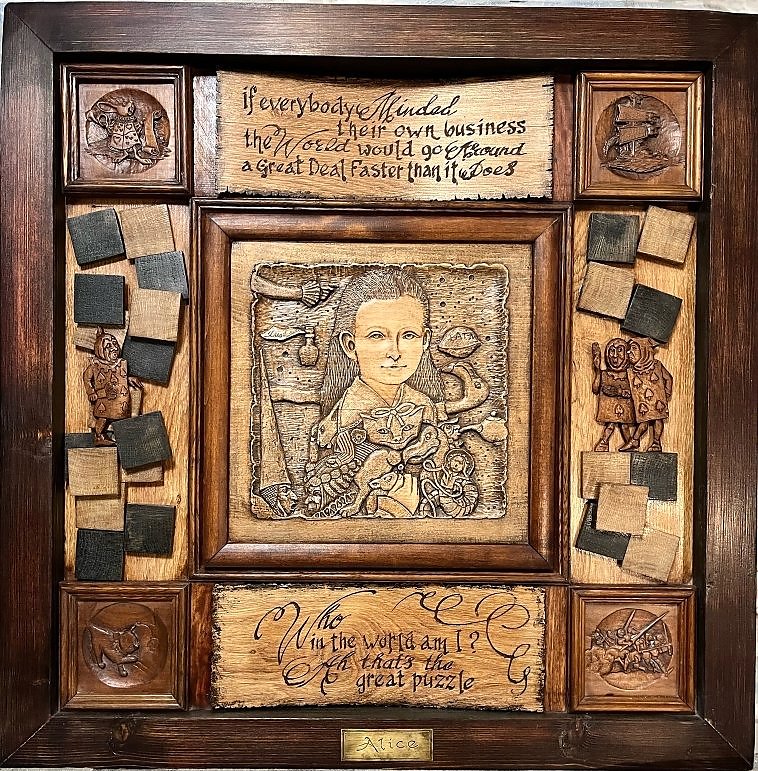 if everybody Minded
their own business
the World would go Around
a Great Deal Faster than it Does
Who
in the world am I?
Ah thats the
great puzzle
Alice